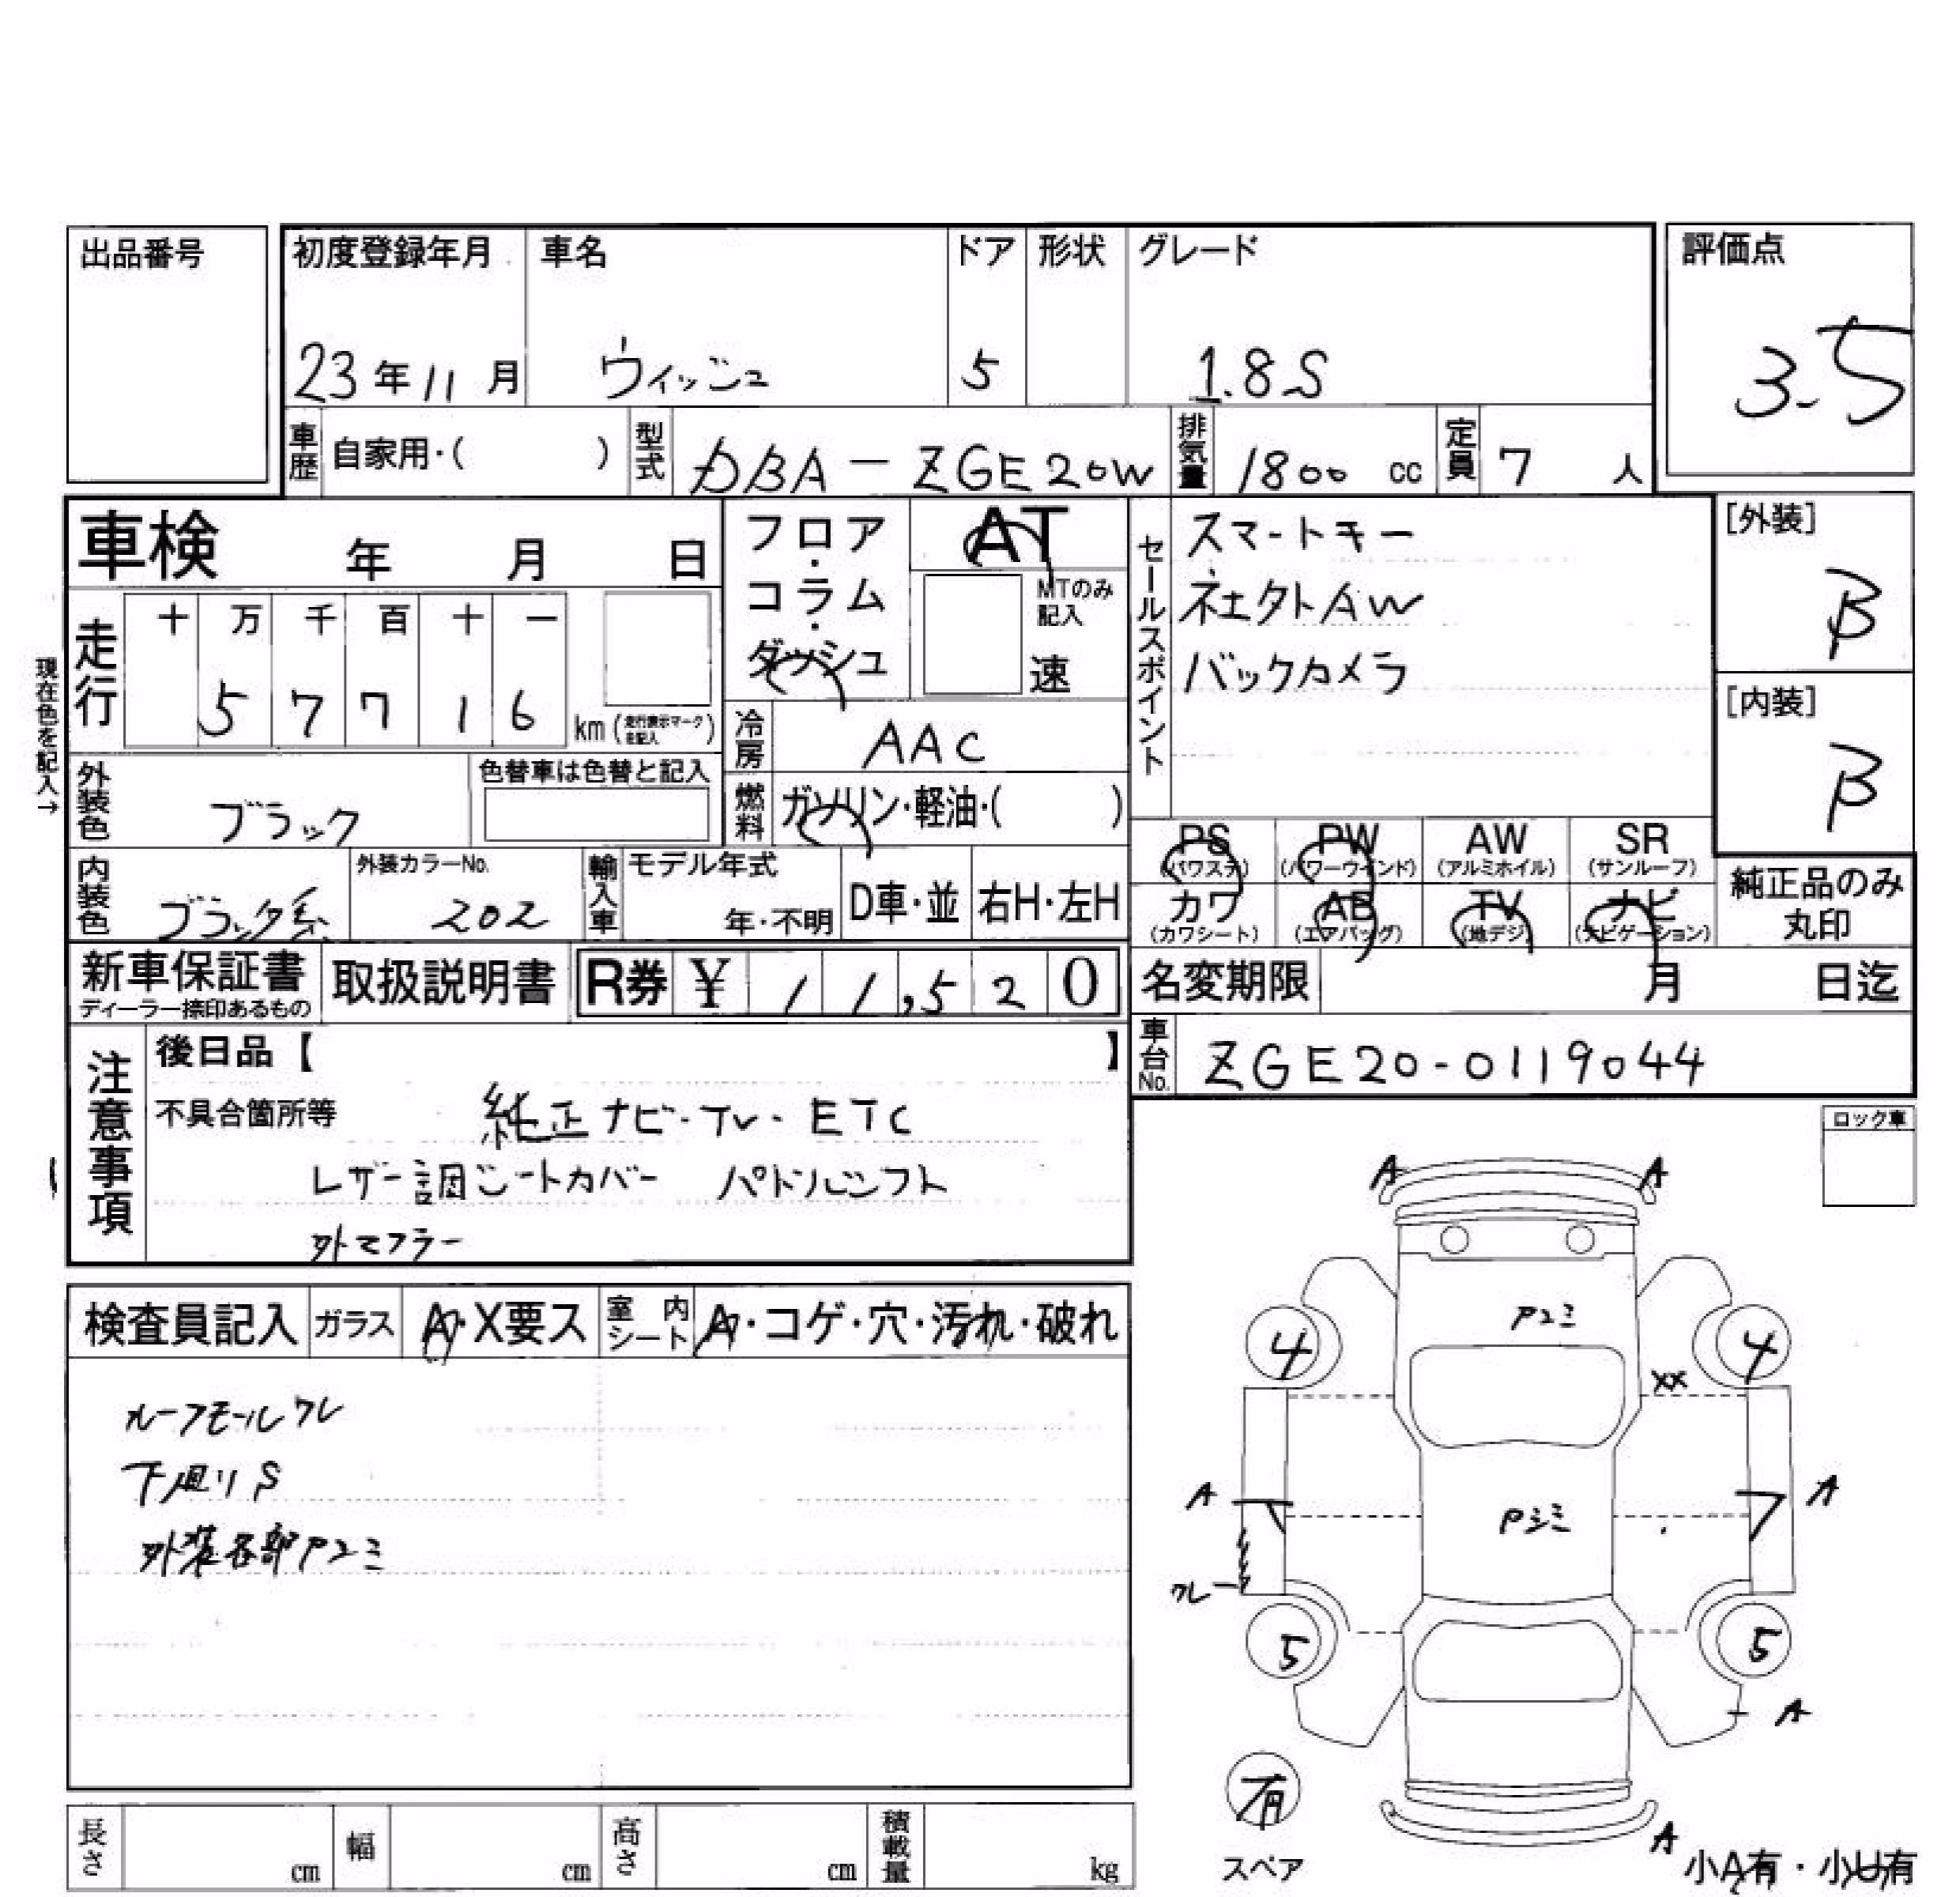 出品番号
初度登録年月 車名 ドア 形状 グレード 評価点
23年11月 ウィッシュ 5 1.8S 3.5
車歴 自家用・( ) 型式 DBA-ZGE20W 排気量 1800cc 定員 7人
車検 年 月 日
フロア・コラム・ダッシュ AT
MTのみ記入
速
セールスポイント
スマートキー
社外AW
バックカメラ
[外装]
B
[内装]
B
現在色を記入→
走行 十 万 千 百 十 一
5 7 7 1 6 km(走行表示マークを記入)
冷房 AAC
外装色 ブラック 色替車は色替と記入
燃料 ガソリン・軽油・( )
PS(パワステ) PW(パワーウインド) AW(アルミホイル) SR(サンルーフ)
カワ(カワシート) AB(エアバッグ) TV(地デジ) ナビ(ナビゲーション)
純正品のみ丸印
内装色 ブラック系 外装カラーNo. 202 輸入車 モデル年式 年・不明 D車・並 右H・左H
新車保証書 ディーラー捺印あるもの 取扱説明書 R券 ¥ 11,520
名変期限 月 日迄
車台No. ZGE20-0119044
注意事項
後日品【 】
不具合箇所等 純正ナビ-TV-ETC
レザー調シートカバー パドルシフト
外マフラー
ロック車
検査員記入 ガラス A・X要ス 室内シート A・コゲ・穴・汚れ・破れ
ルーフモールワレ
下廻りS
外装各部Pコミ
A A
Pコミ
4 4
XX
A A
Pコミ
ワレ
5 5
A
有
スペア
A
小A有・小U有
長さ cm 幅 cm 高さ cm 積載量 kg